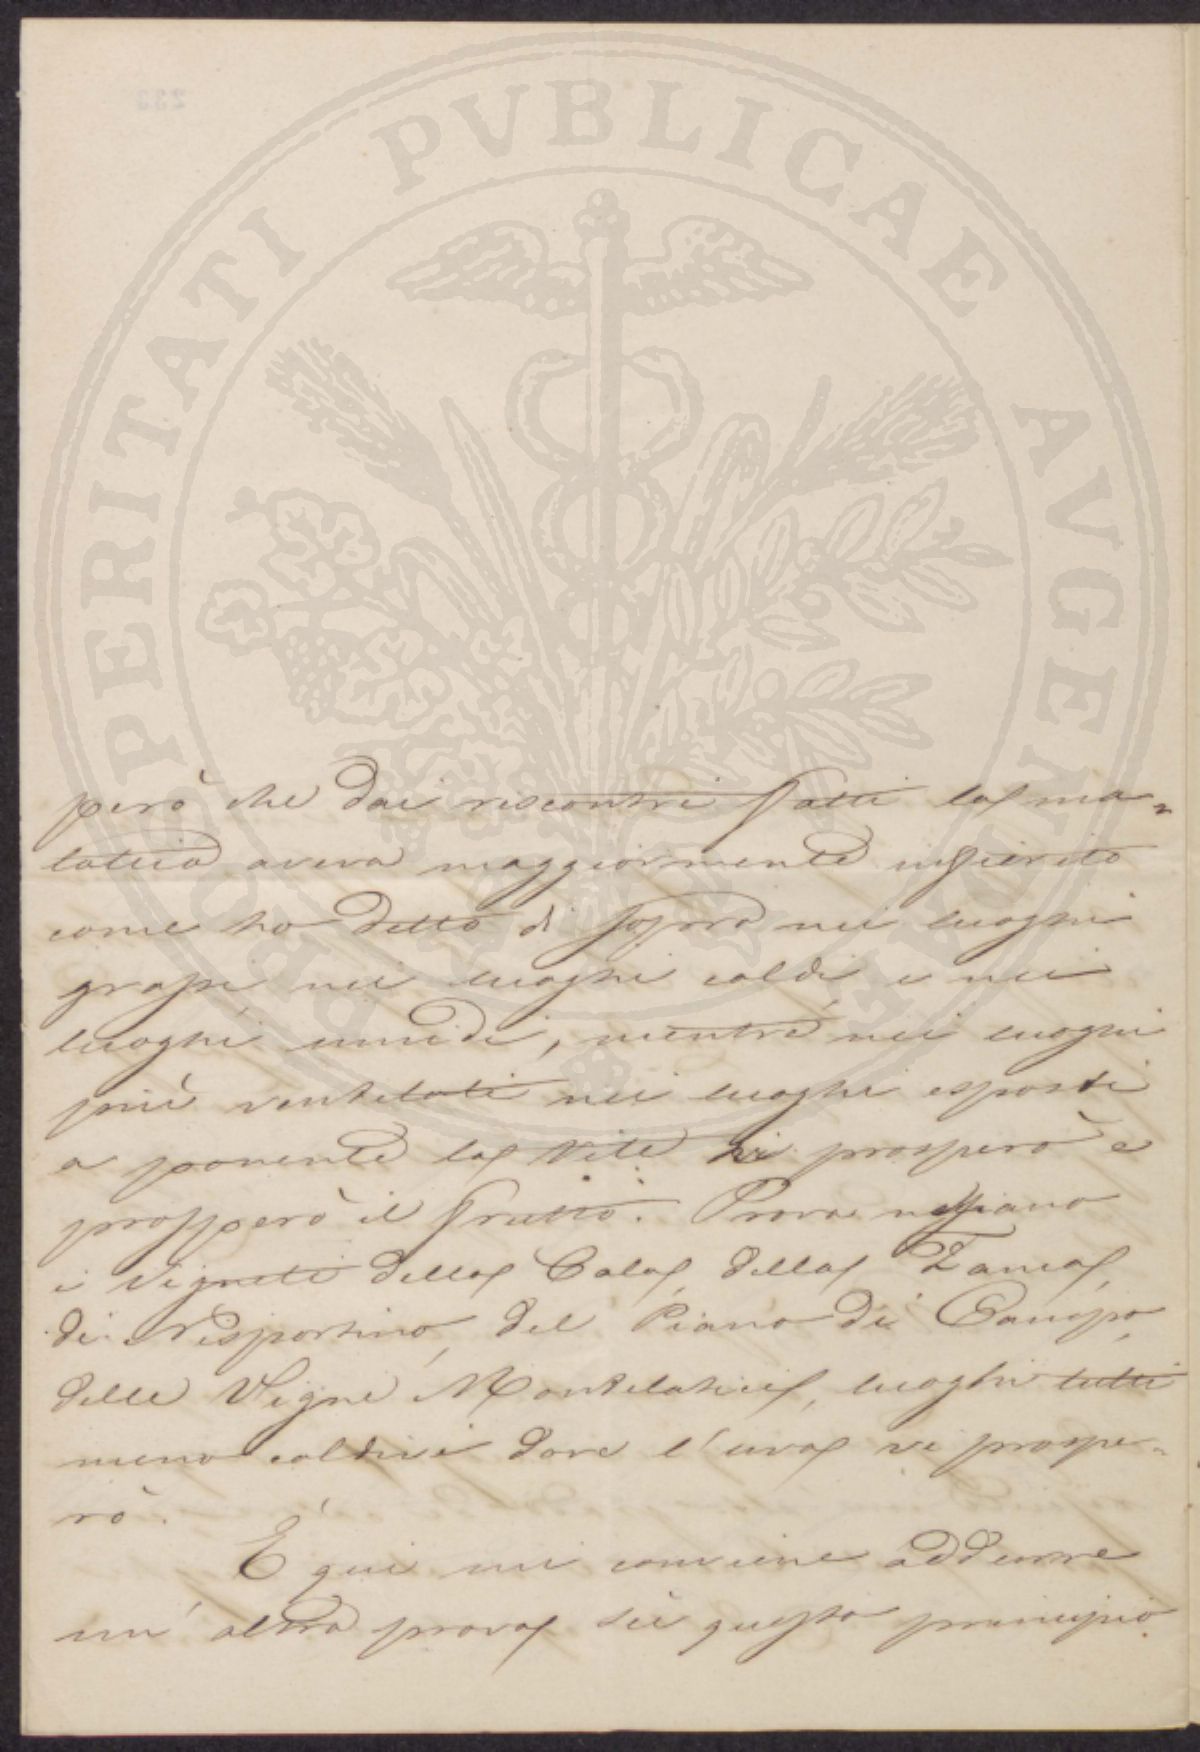 PROSPERITATI PVBLICAE AVGENDAE
però che dai riscontri fatti la ma=
lattia aveva maggiormente infierito
come ho detto di sopra nei luoghi
grassi nei luoghi caldi e nei
luoghi umidi, mentre nei luoghi
più ventilati nei luoghi esposti
a ponente la vite vi prosperò e
prosperò il frutto. Prova ne siano
i Vigneti della Cala, della Zanca,
di Nisportino, del Piano di Campo,
delle Vigne Montelatici, luoghi tutti
meno caldivi dove l'uva vi prospe=
rò.
E qui mi conviene addurre
un' altra prova sù questo principio.